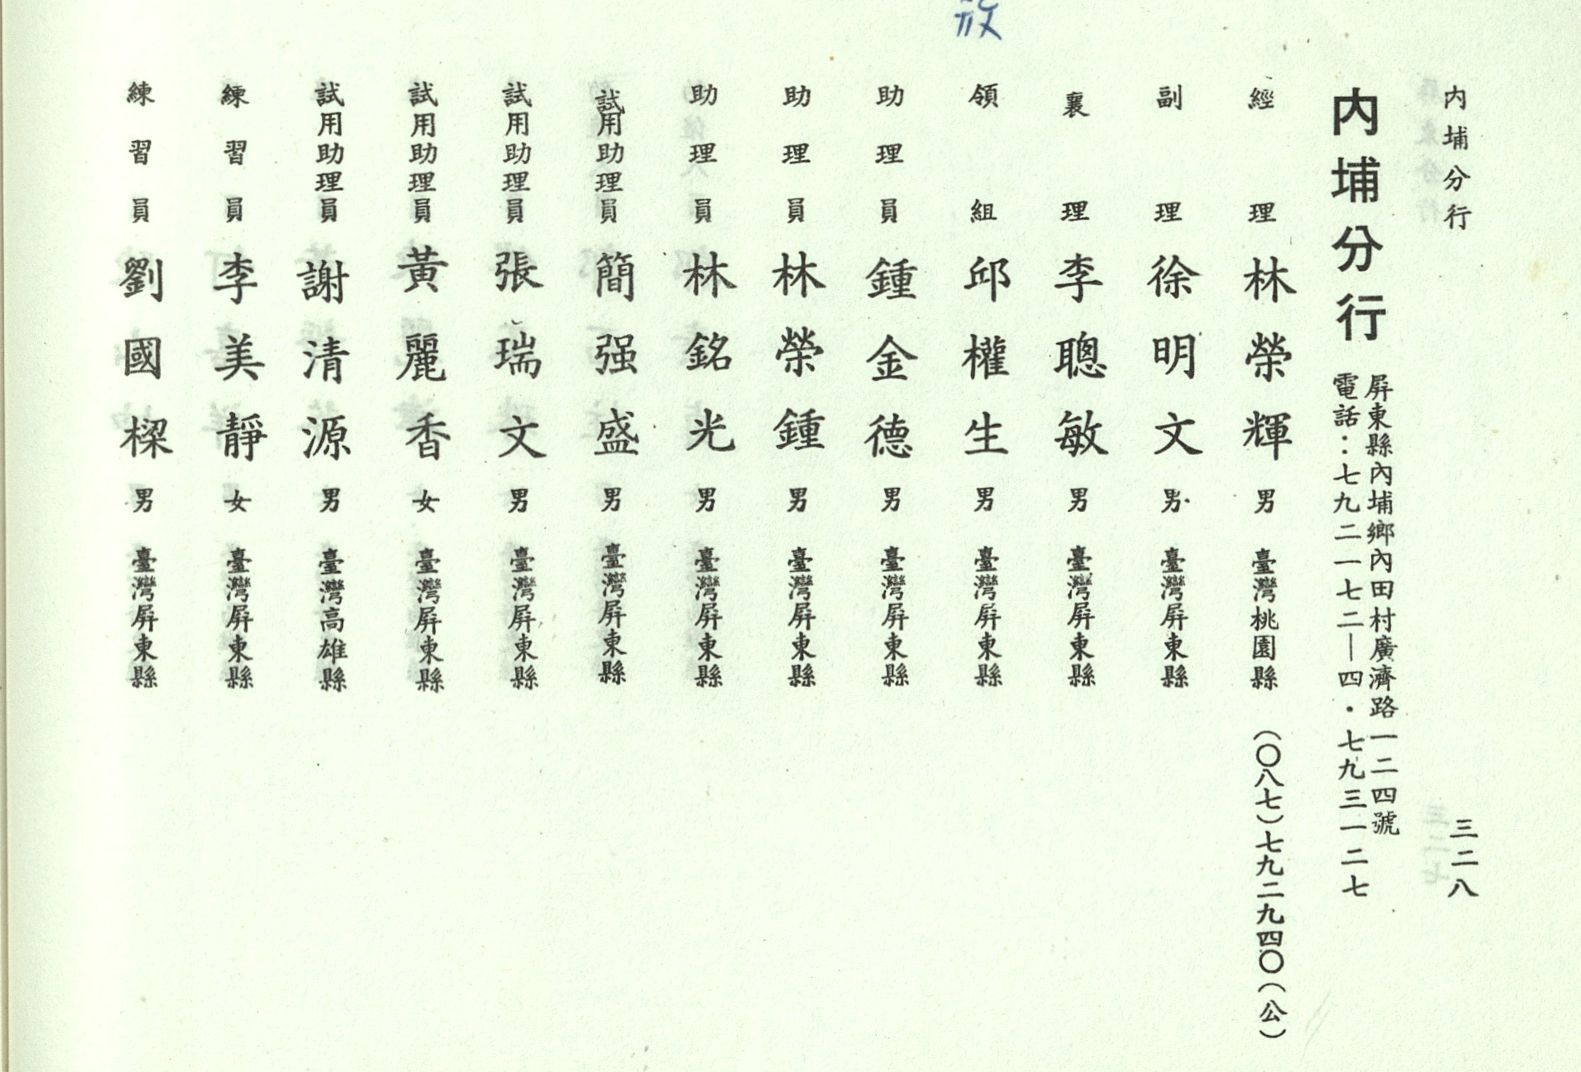 內埔分行
三二八
內埔分行
屏東縣內埔鄉內田村廣濟路一二四號
電話：七九二一七二—四・七九三一二七
經理 林榮輝 男 臺灣桃園縣 (〇八七)七九二九四〇(公)
副理 徐明文 男 臺灣屏東縣
襄理 李聰敏 男 臺灣屏東縣
領組 邱權生 男 臺灣屏東縣
助理員 鍾金德 男 臺灣屏東縣
助理員 林榮鍾 男 臺灣屏東縣
助理員 林銘光 男 臺灣屏東縣
試用助理員 簡强盛 男 臺灣屏東縣
試用助理員 張瑞文 男 臺灣屏東縣
試用助理員 黃麗香 女 臺灣屏東縣
試用助理員 謝清源 男 臺灣高雄縣
練習員 李美靜 女 臺灣屏東縣
練習員 劉國樑 男 臺灣屏東縣